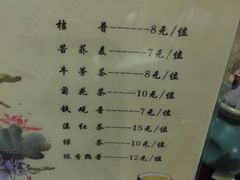 桔 普------8元/位
苦荞麦------7元/位
牛蒡茶------8元/位
菊花茶-----10元/位
铁观音-----7元/位
滇红茶-----15元/位
绿 茶-----10元/位
陈香熟普---12元/位